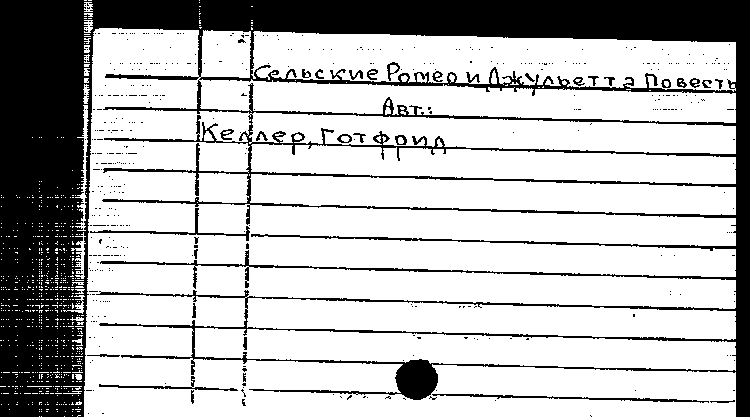 Сельские Ромео и Джульетта Повесть
Авт.:
Келлер, Готфрид